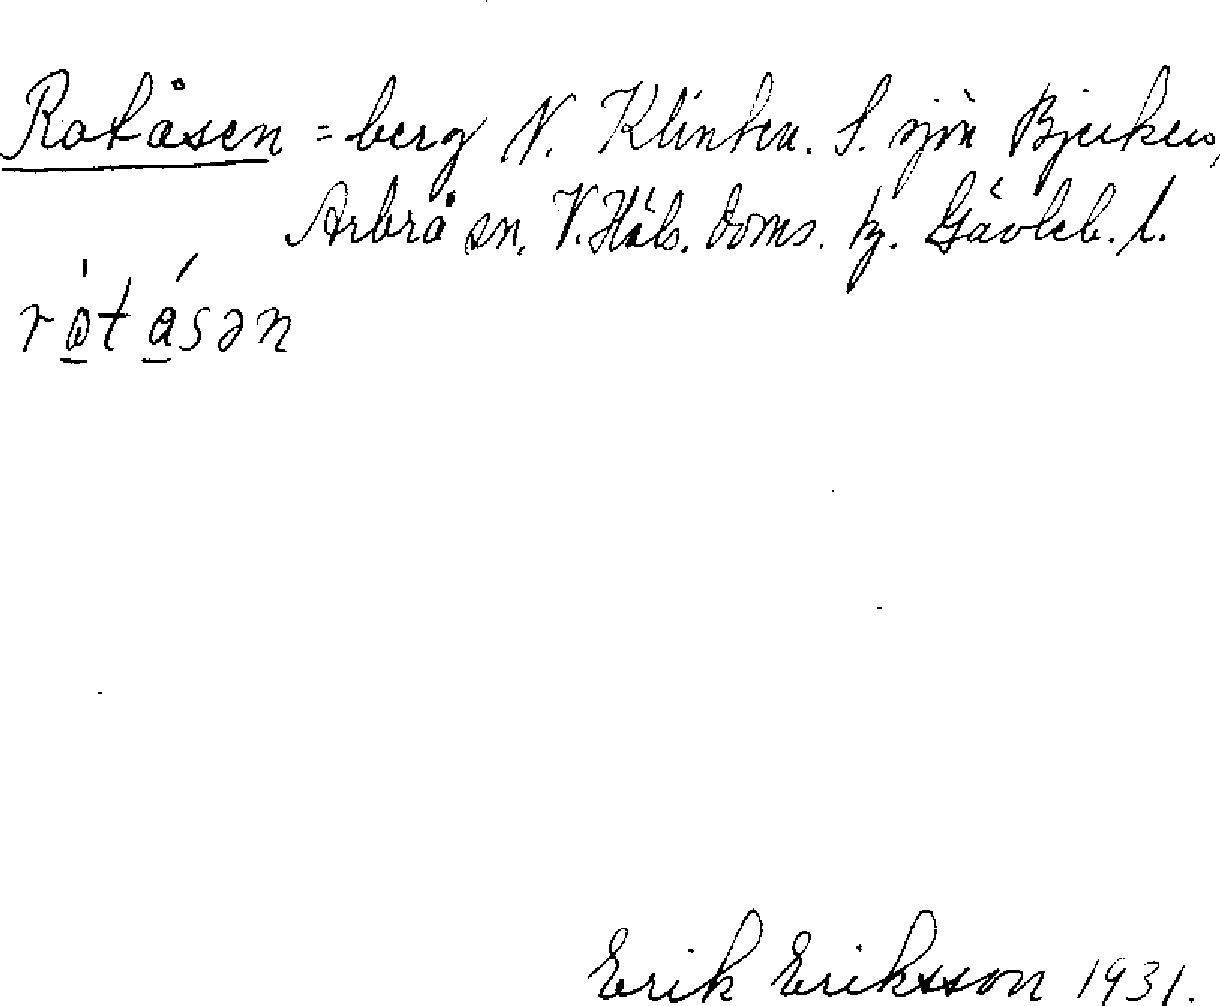 Rotåsen = berg N. Klinten. S. sjön Bjerken,
Arbrå sn. V. Häls. doms. hg. Gävleb. l.
rotåsən
Erik Eriksson 1931.